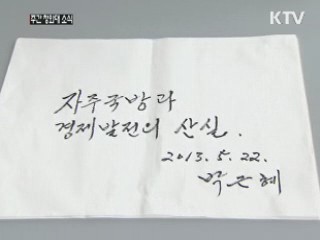 주간 청와대 소식
KTV
자주국방과
경제발전의 산실.
2013. 5. 22.
박근혜